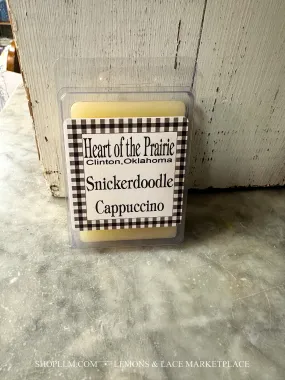 Heart of the Prairie
Clinton,Oklahoma
Snickerdoodle
Cappuccino
SHOPLLM.COM LEMONS & LACE MARKETPLACE